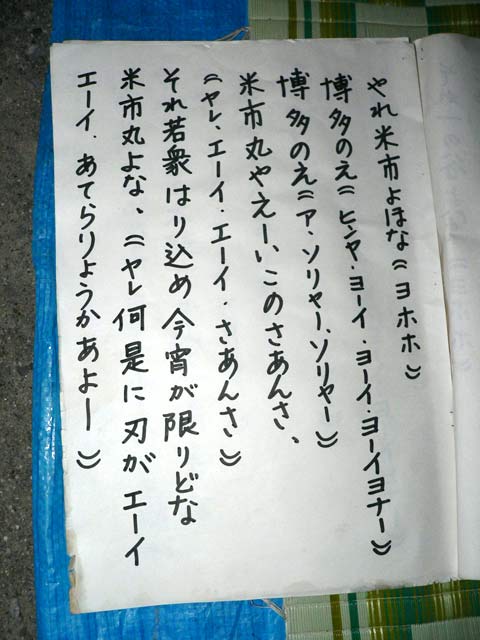 やれ米市よほな(（ヨホホ）)
博多のえ(（ヒンヤ・ヨーイ・ヨーイ・ヨーイヨナー）)
博多のえ(（ア・ソリャー、ソリャー）)
米市丸やえーいこのさあんさ、
(（ヤレ、エーイ・エーイ・さあんさ）)
それ若衆はり込め今宵が限りどな
米市丸よな、(（ヤレ何是に刃がエーイ
エーイ・あてらりょうかあよー）)